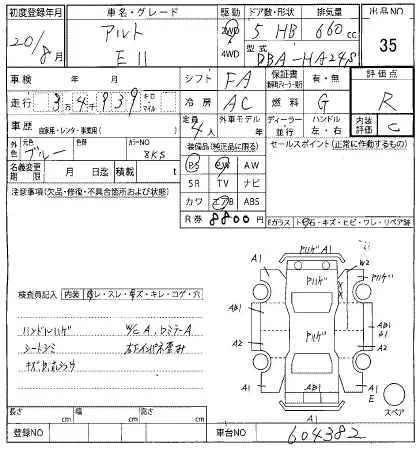 初度登録年月 車名・グレード 駆動 ドア数・形状 排気量 出品NO
20/8月 アルト 2WD 5 HB 660cc 35
E II 4WD 型式 DBA-HA24S
車検 年 月 シフト FA 保証書 有・無 評価点
走行 3万4千939 キロ マイル 冷房 AC 燃料 G R
車歴 自家用・レンタ・事業用( ) 定員 4人 外車モデル 年 ディーラー 並行 ハンドル 左・右 内装評価 C
外色 元色 ブルー 色替 カラーNO ZKS 装備品(純正品に限る) セールスポイント(正常に作動するもの)
名義変更期限 月 日迄 積載 t PS PW AW
注意事項(欠品・修復・不具合箇所および状態) SR TV ナビ
カワ エアB ABS
R券 8800円 Fガラス トビ石・キズ・ヒビ・ワレ・リペア跡
A1 W2
検査員記入 内装 ヨゴレ・スレ・キズ・キレ・コゲ・穴
ハンドルハゲ
シートシミ
AB1 A2 A1
AB1 B1 A2 A1 E
A1 スペア
長さ cm 幅 cm 高さ cm
登録NO 車台NO 604382